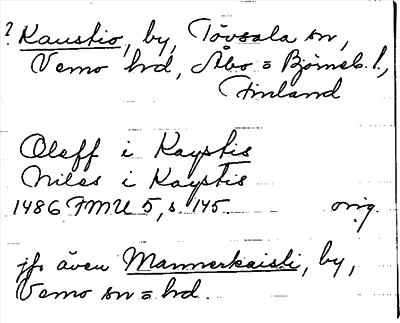 ? Kaustio, by, Tövsala sn,
Vemo hd, Åbo = Björneb. l.,
Finland
Oleff i Kaystis
Niles i Kaystis
1486 FMU 5, s. 145. orig.
jfr även Mannerkaisti, by,
Vemo sn = hd.